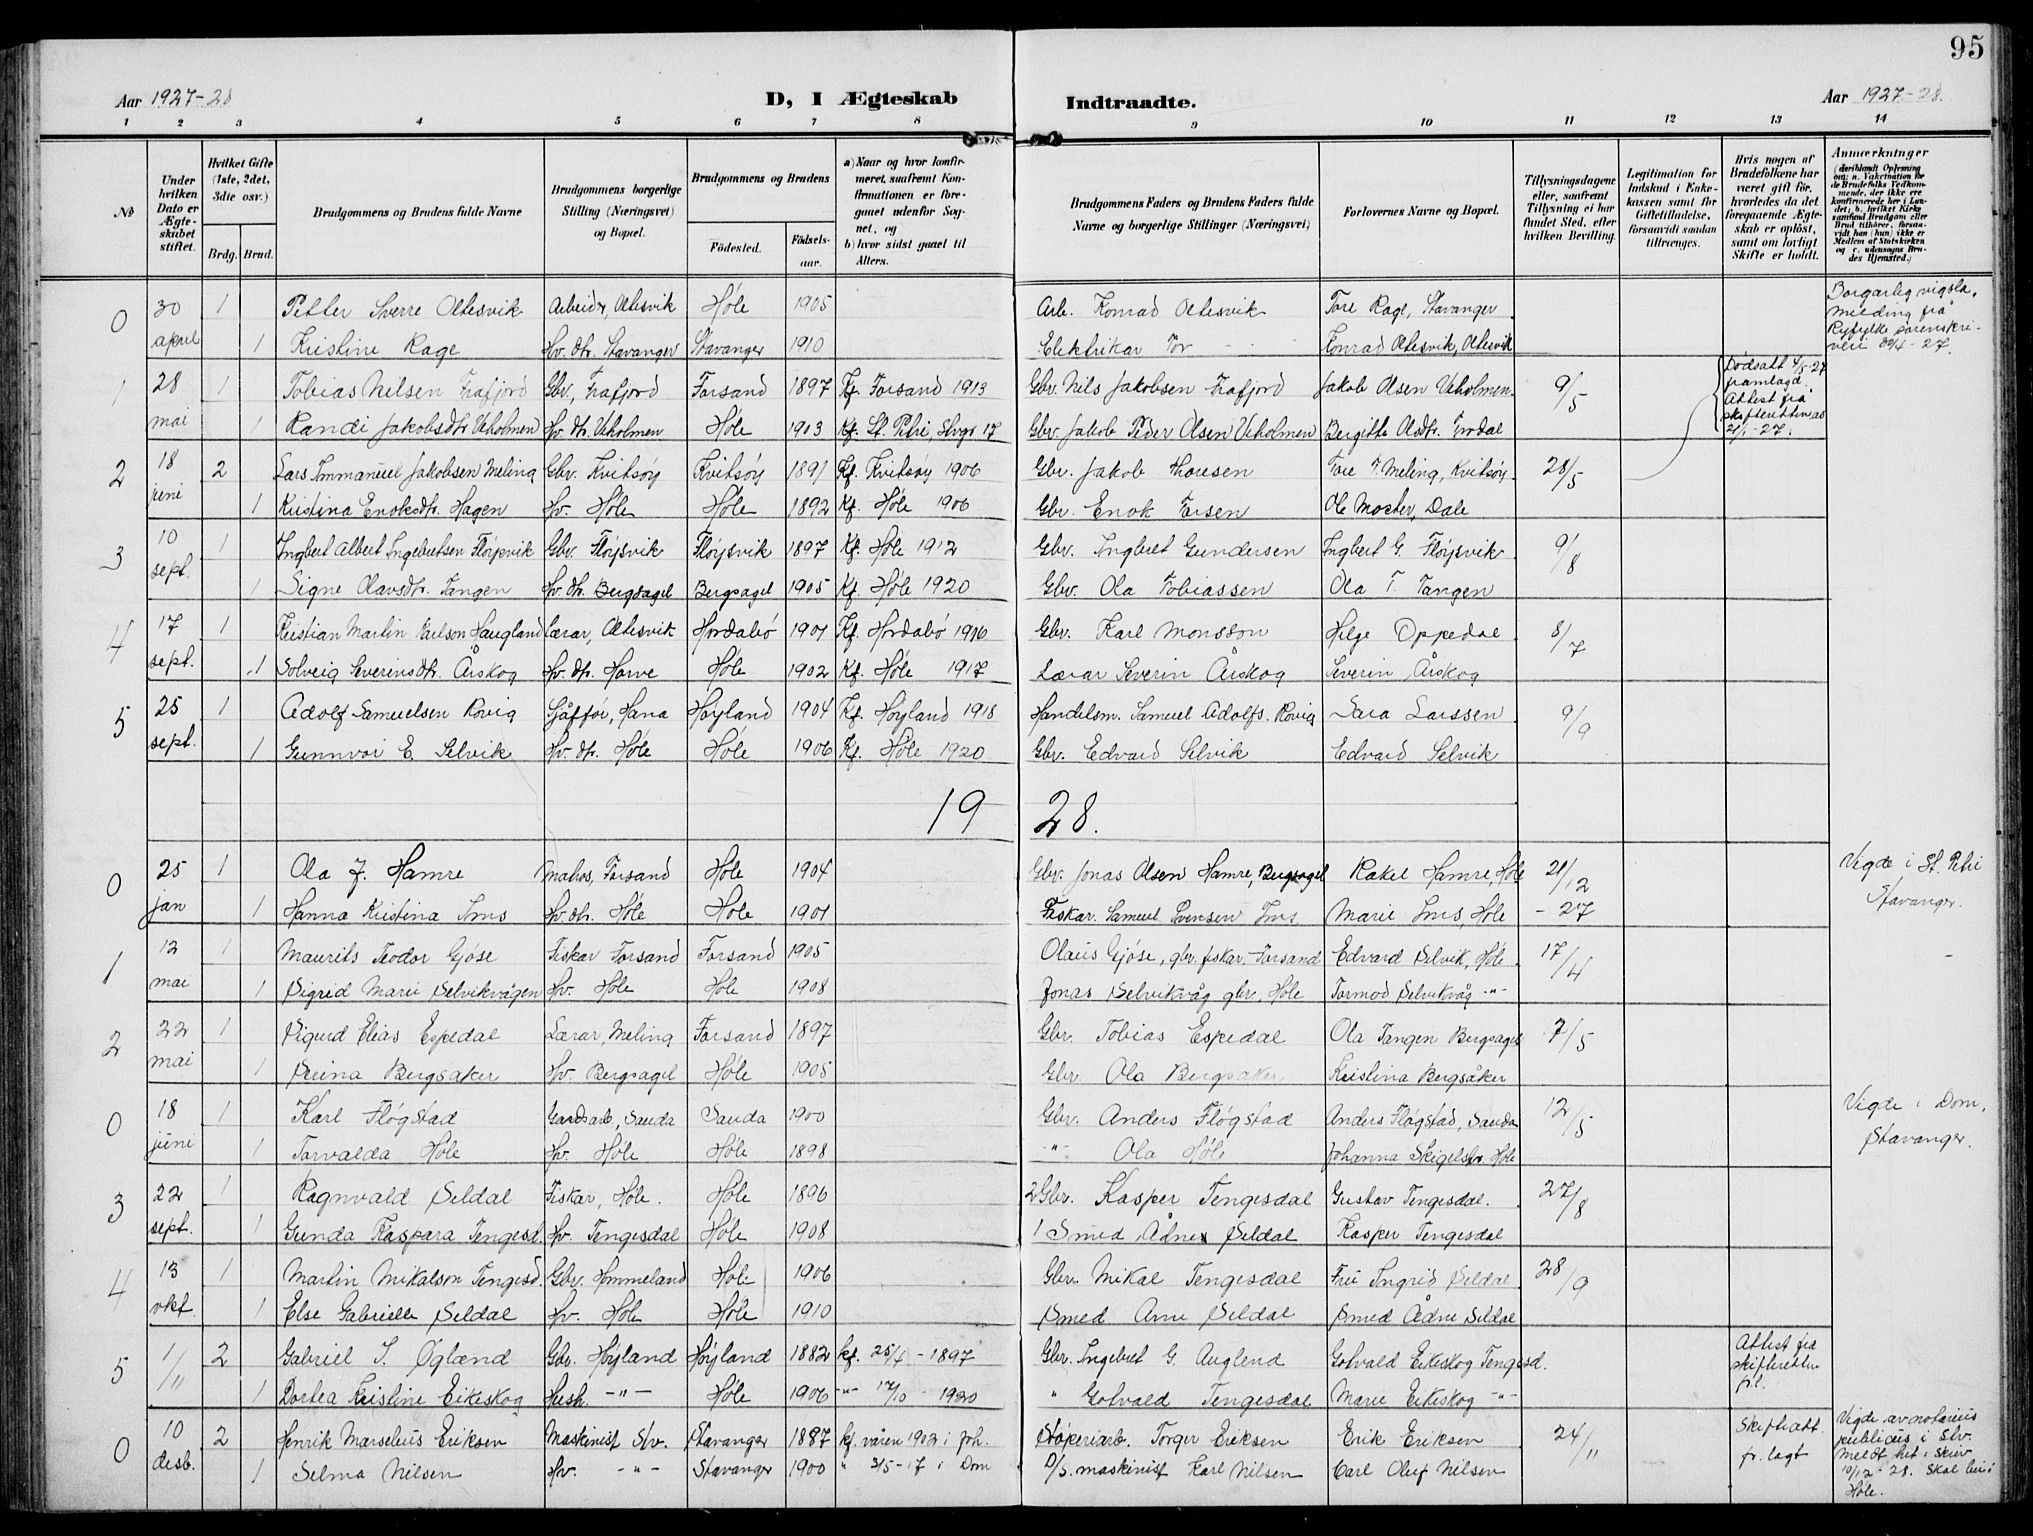 95
Aar 1927-28
D, I Ægteskab
Indtraadte.
Aar 1927-28.
1 2 3 4 5 6 7 8 9 10 11 12 13 14
No
Under hvilken Dato er Ægteskabet stiftet.
Hvilket Gifte (1ste, 2det, 3die osv.)
Brdg. Brud.
Brudgommens og Brudens fulde Navne
Brudgommens borgerlige Stilling (Næringsvei) og Bopæl.
Brudgommens og Brudens
Fødested.
Fødselsaar.
a) Naar og hvor konfirmeret, saafremt Konfirmationen er foregaaet udenfor Sognet, og
b) hvor sidst gaaet til Alters.
Brudgommens Faders og Brudens Faders fulde Navne og borgerlige Stillinger (Næringsvei)
Forlovernes Navne og Bopæl.
Tillysningsdagene eller, saafremt Tillysning ei har fundet Sted, efter hvilken Bevilling.
Legitimation for Indskud i Enkekassen samt for Giftetilladelse, forsaavidt saadan tiltrænges.
Hvis nogen af Brudefolkene har været gift før, hvorledes da det foregaaende Ægteskab er opløst, samt om lovligt Skifte er holdt.
Anmærkninger
(deriblandt Oplysning om: a. Vakcination for de Brudefolks Vedkommende, der ikke ere konfirmerede her i Landet; b. hvilket Kirkesamfund Brudgom eller Brud tilhører, forsaavidt han (hun) ikke er Medlem af Statskirken og c. udensogns Brudes Hjemsted.)
0 30 april 1 Petter Sverre Oltesvik Arbeider, Oltesvik Høle 1905 Arb. Konrad Oltesvik Tore Rage, Stavanger Borgarleg vigsla, melding frå Ryfylke sorenskriveri 30/4-27.
1 Kristine Rage Hv. dtr. Stavanger Stavanger 1910 Elektrikar Tor - - Konrad Oltesvik, Oltesvik
1 28 mai 1 Tobias Nilsen Frafjord Gbr., Frafjord Forsand 1897 Kf. Forsand 1913 Gbr. Nils Jakobsen Frafjord Jakob Olsen Uxholmen 9/5
1 Randi Jakobsdtr. Uxholmen Hv. dtr. Uxholmen Høle 1903 Kf. St. Petri, Stvgr 17 Gbr. Jakob Peder Olsen Uxholmen Bergitte Olsdtr.
2 18 juni 2 Lars Immanuel Jakobsen Meling Gbr. Kvitsøy Kvitsøy 1891 Kf. Kvitsøy 1906 Gbr. Jakob Thoresen Tore Meling, Kvitsøy 28/5 Dødsatt framlagd. Attest frå skifteretten
1 Kristina Enoksdtr. Hagen Hv. Høle Høle 1892 Kf. Høle 1906 Gbr. Enok Tarsen Ole Moster, Dale
3 10 sept. 1 Ingbert Albert Ingebretsen Fløysvik Gbr. Fløysvik Fløysvik 1897 Kf. Høle 1912 Gbr. Ingbret Gundersen Ingbert G. Fløysvik 9/8
1 Signe Olavsdtr. Tangen Hv. dtr. Bergsagel Bergsagel 1905 Kf. Høle 1920 Gbr. Ola Tobiassen Ola T. Tangen
4 17 sept. 1 Kristian Martin Karlson Haugland Lærar, Oltesvik Hordabø 1901 Kf. Hordabø 1916 Gbr. Karl Monsson Helge Oppedal 8/7
1 Solveig Severinsdtr. Årskog Hv. dtr. Høle 1902 Kf. Høle 1917 Lærar Severin Årskog Severin Årskog
5 25 sept. 1 Adolf Samuelsen Rovig Sjåffør, Hana Høyland 1904 Kf. Høyland 1918 Handelsm. Samuel Adolfs. Rovig Sara Larssen 9/9
1 Gunnvor E. Selvik Hv. dtr. Høle Høle 1906 Kf. Høle 1920 Gbr. Edvard Selvik Edvard Selvik
19 28.
0 25 jan 1 Ola J. Hamre Matros, Forsand Høle 1904 Gbr. Jonas Olsen Hamre, Bergsagel Rakel Hamre, Høle 21/12 Vigde i St. Petri Stavanger.
1 Hanna Kristina Ims Hv. dtr. Høle Høle 1901 Fiskar. Samuel Svensen Ims Marie Ims, Høle - 27
1 12 mai 1 Maurits Teodor Gjøse Fiskar Forsand Forsand 1905 Olaus Gjøse, gbr. fiskar. Forsand Edvard Selvik, Høle 17/4
1 Sigrid Marie Selvikvågen Hv. Høle Høle 1908 Jonas Selvikvåg gbr. Høle Tormod Selvikvåg -"-
2 22 mai 1 Sigurd Elias Espedal Lærar, Meling Forsand 1897 Gbr. Tobias Espedal Ola Tangen Bergsagel 7/5
1 Serina Bergsaker Hv. Bergsagel Høle 1905 Gbr. Ola Bergsaker Kristina Bergsåker
0 18 juni 1 Karl Fløgstad Gardsarb., Sauda Sauda 1900 Gbr. Anders Fløgstad Anders Fløgstad, Sauda 12/5 Vigde i Dom. Stavanger.
1 Torvalda Høle Hv. Høle Høle 1898 -"- Ola Høle Johanna Høle
3 22 sept. 1 Ragnvald Seldal Fiskar, Høle. Høle 1896 2 Gbr. Kasper Tengesdal Gustav Tengesdal. 27/8
1 Gunda Kaspara Tengesd. Hv. Tengesdal Høle 1908 1 Smed Ådne Seldal Kasper Tengesdal
4 13 okt. 1 Martin Mikalson Tengesd. Gbr. Hommeland Høle 1906 Gbr. Mikal Tengesdal Fru Ingrid Seldal 28/9
1 Else Gabrielle Seldal Hv. Høle Høle 1910 Smed Arne Seldal Smed Ådne Seldal
5 1/11 2 Gabriel I. Øglænd Gbr. Høyland Høyland 1882 kf. 25/4 - 1897 Gbr. Ingebret G. Auglend Gotvald Eikeskog Tengesd. Attest frå skifteretten f.l.
1 Dortea Kristine Eikeskog Hush. -"- Høle 1906 -"- 17/10 - 1920 " Gotvald Tengesdal Marie Eikeskog -"-
0 10 desb. 2 Henrik Marselius Eriksen Maskinist Stv. Stavanger 1887 kf. våren 1902 i Joh. Støperiarb. Torger Eriksen Erik Eriksen 24/11 Skifteatt. fr. lagt Vigde av notarius publicus i Stv. Meldt hit i skriv 10/12-28. Skal bu i Høle.
1 Selma Nilsen Hv. -"- Stavanger 1900 " 3/5-17 i Dom D/S. maskinist Karl Nilsen Carl Oluf Nilsen